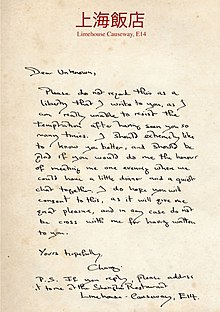 上海飯店
Limehouse Causeway, E14
Dear Unknown,
Please do not regard this as a
liberty that I write to you, as I
am really unable to resist the
temptation after having seen you so
many times. I should extremely like
to know you better, and should be
glad if you would do me the honour
of meeting me one evening when we
could have a little dinner and a quiet
chat together. I do hope you will
consent to this, as it will give me
great pleasure, and in any case do not
be cross with me for having written
to you.
Yours hopefully,
Chang
P.S. If you reply, please address
it to me at the Shanghai Restaurant
Limehouse Causeway, E14.